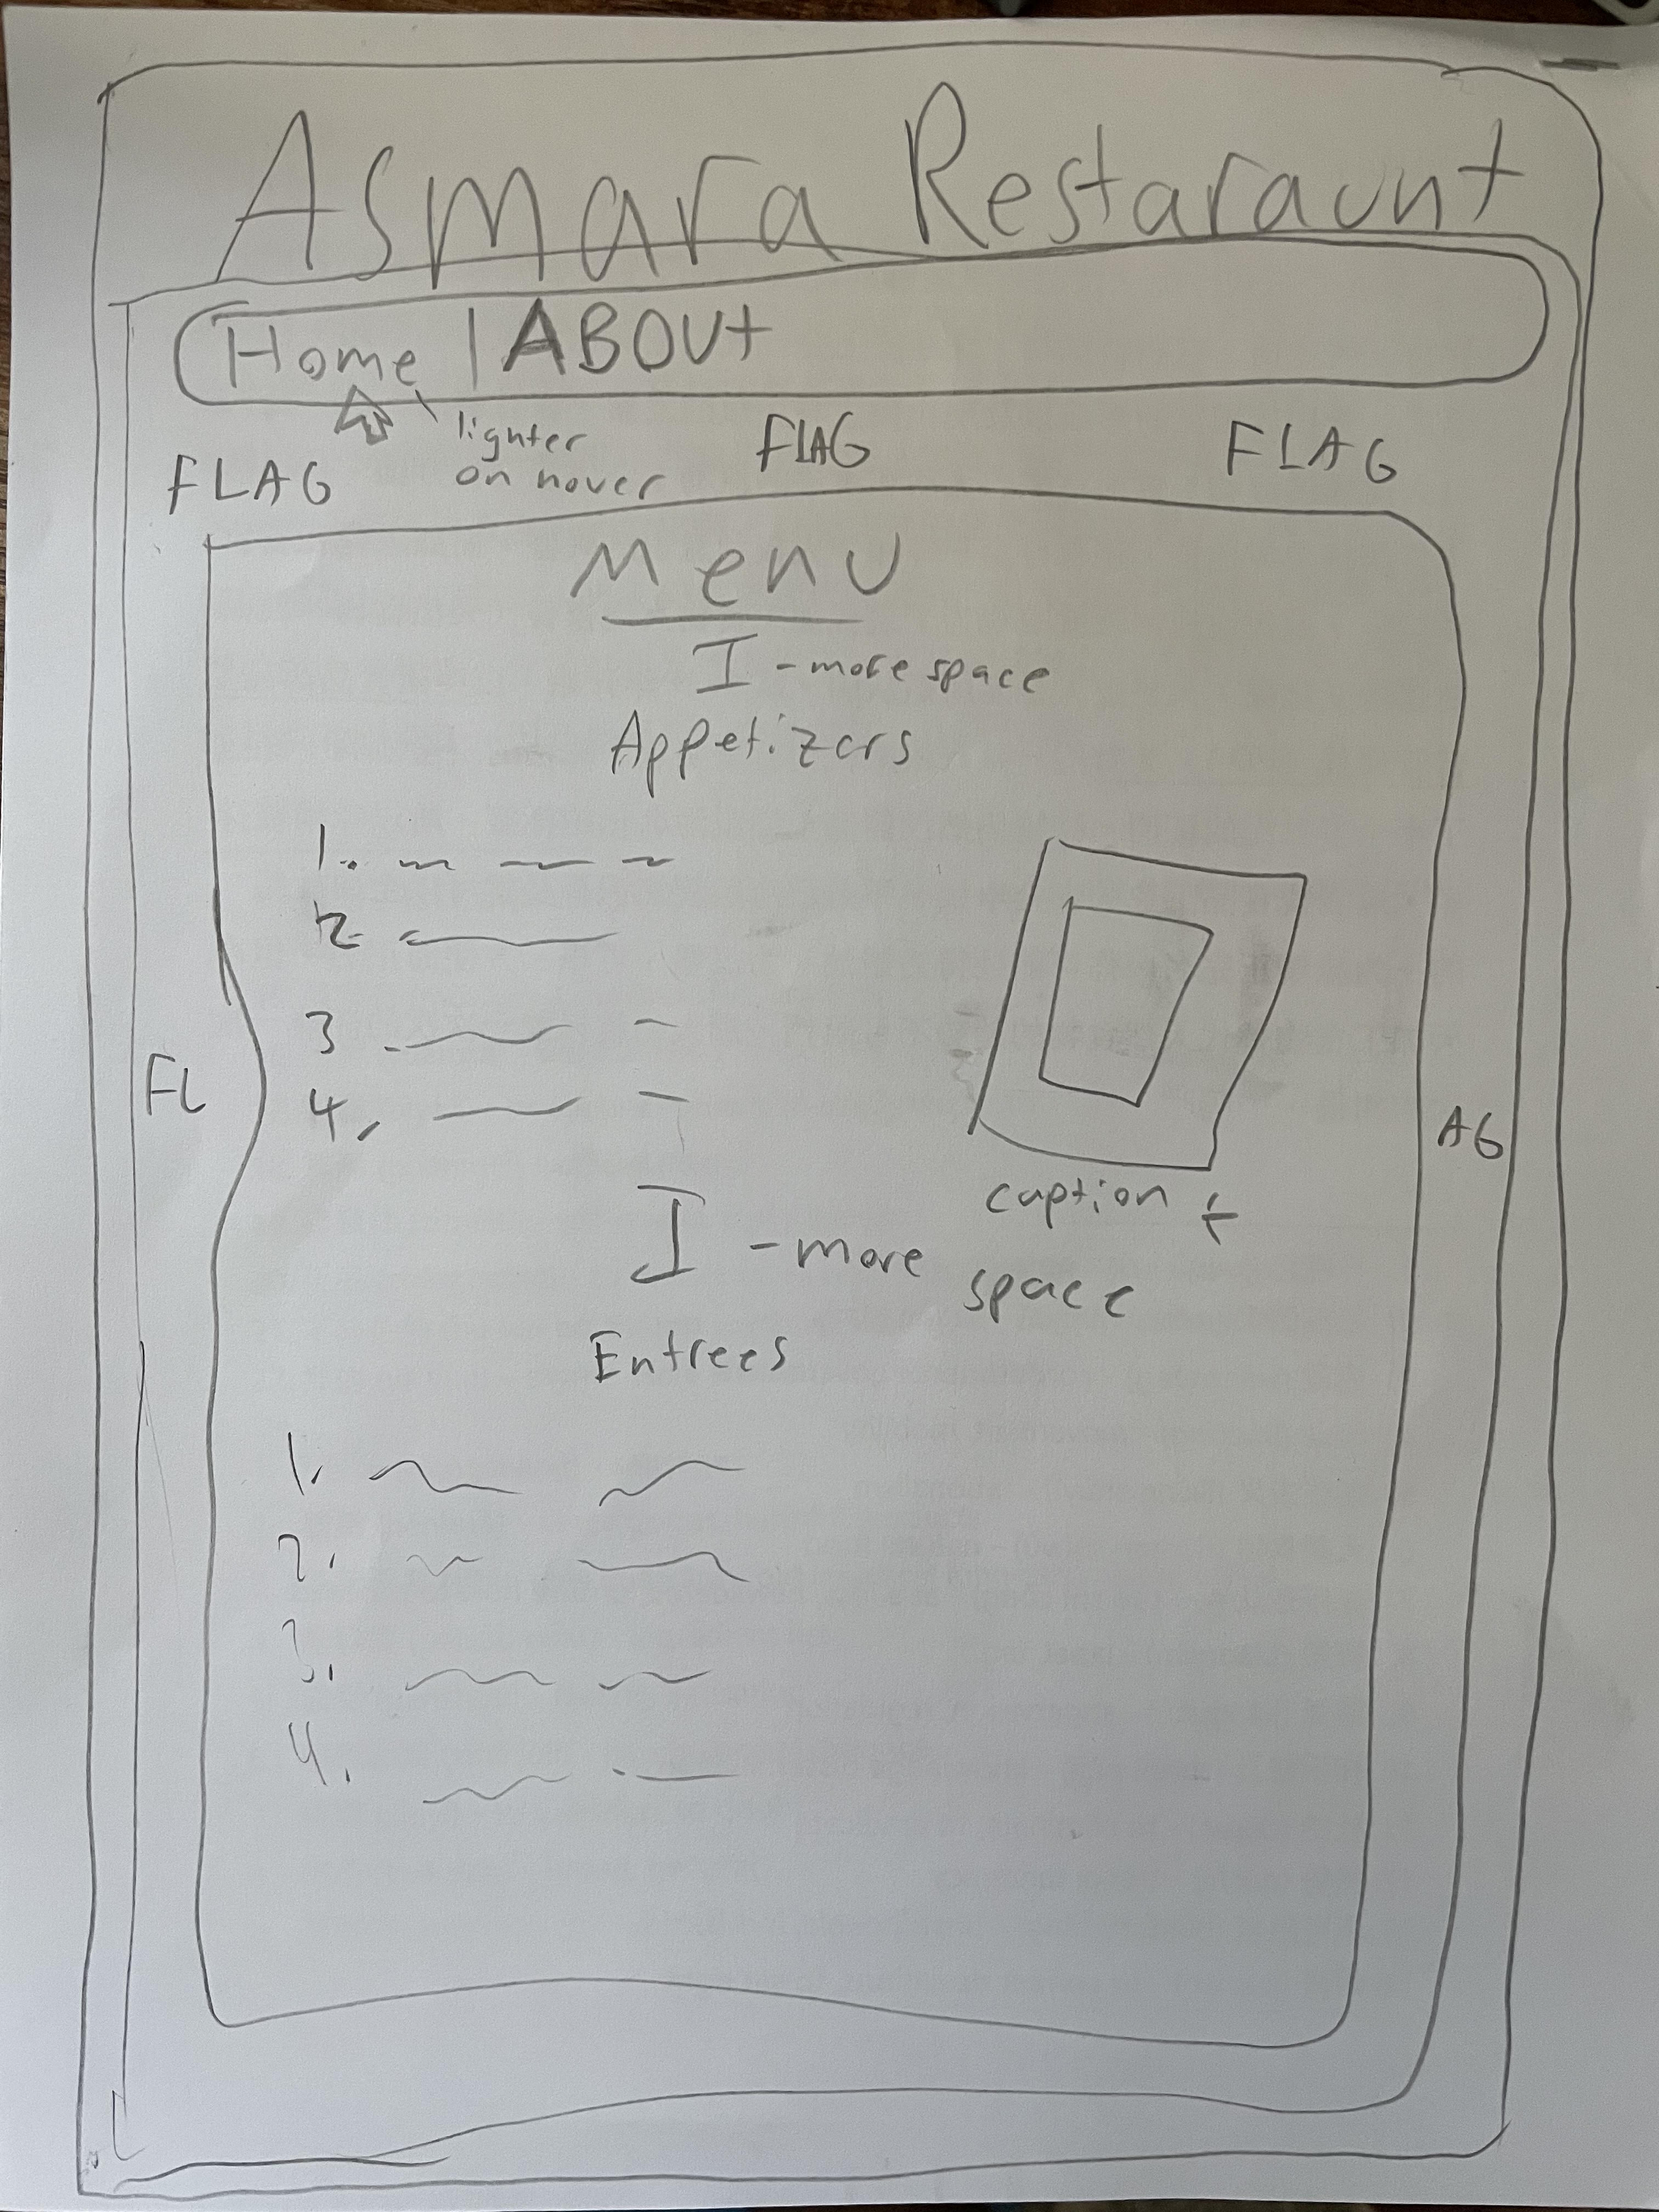 Asmara Restaraunt
Home | ABOUt
lighter
on hover
FLAG
FLAG
FLAG
Menu
I - more space
Appetizers
1.
2.
3
4.
caption
FL
AG
I - more space
Entrees
1.
2.
3.
4.